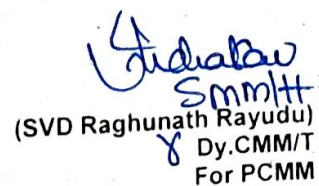 SMM/H
(SVD Raghunath Rayudu)
Dy.CMM/T
For PCMM